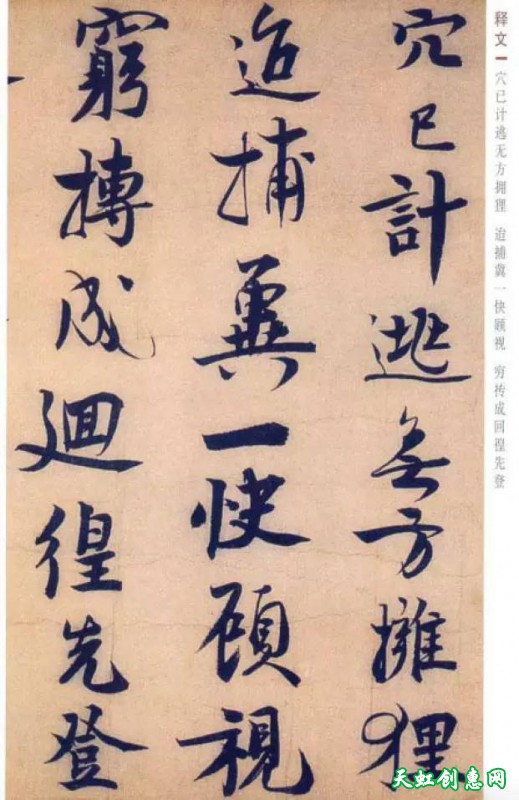 穴已計逃無方擁狸
迨捕冀一快顧視
窮摶成迴徨先登
释文一 穴已计逃无方拥狸 迨捕冀一快顾视 穷抟成回徨先登
天虹创惠网